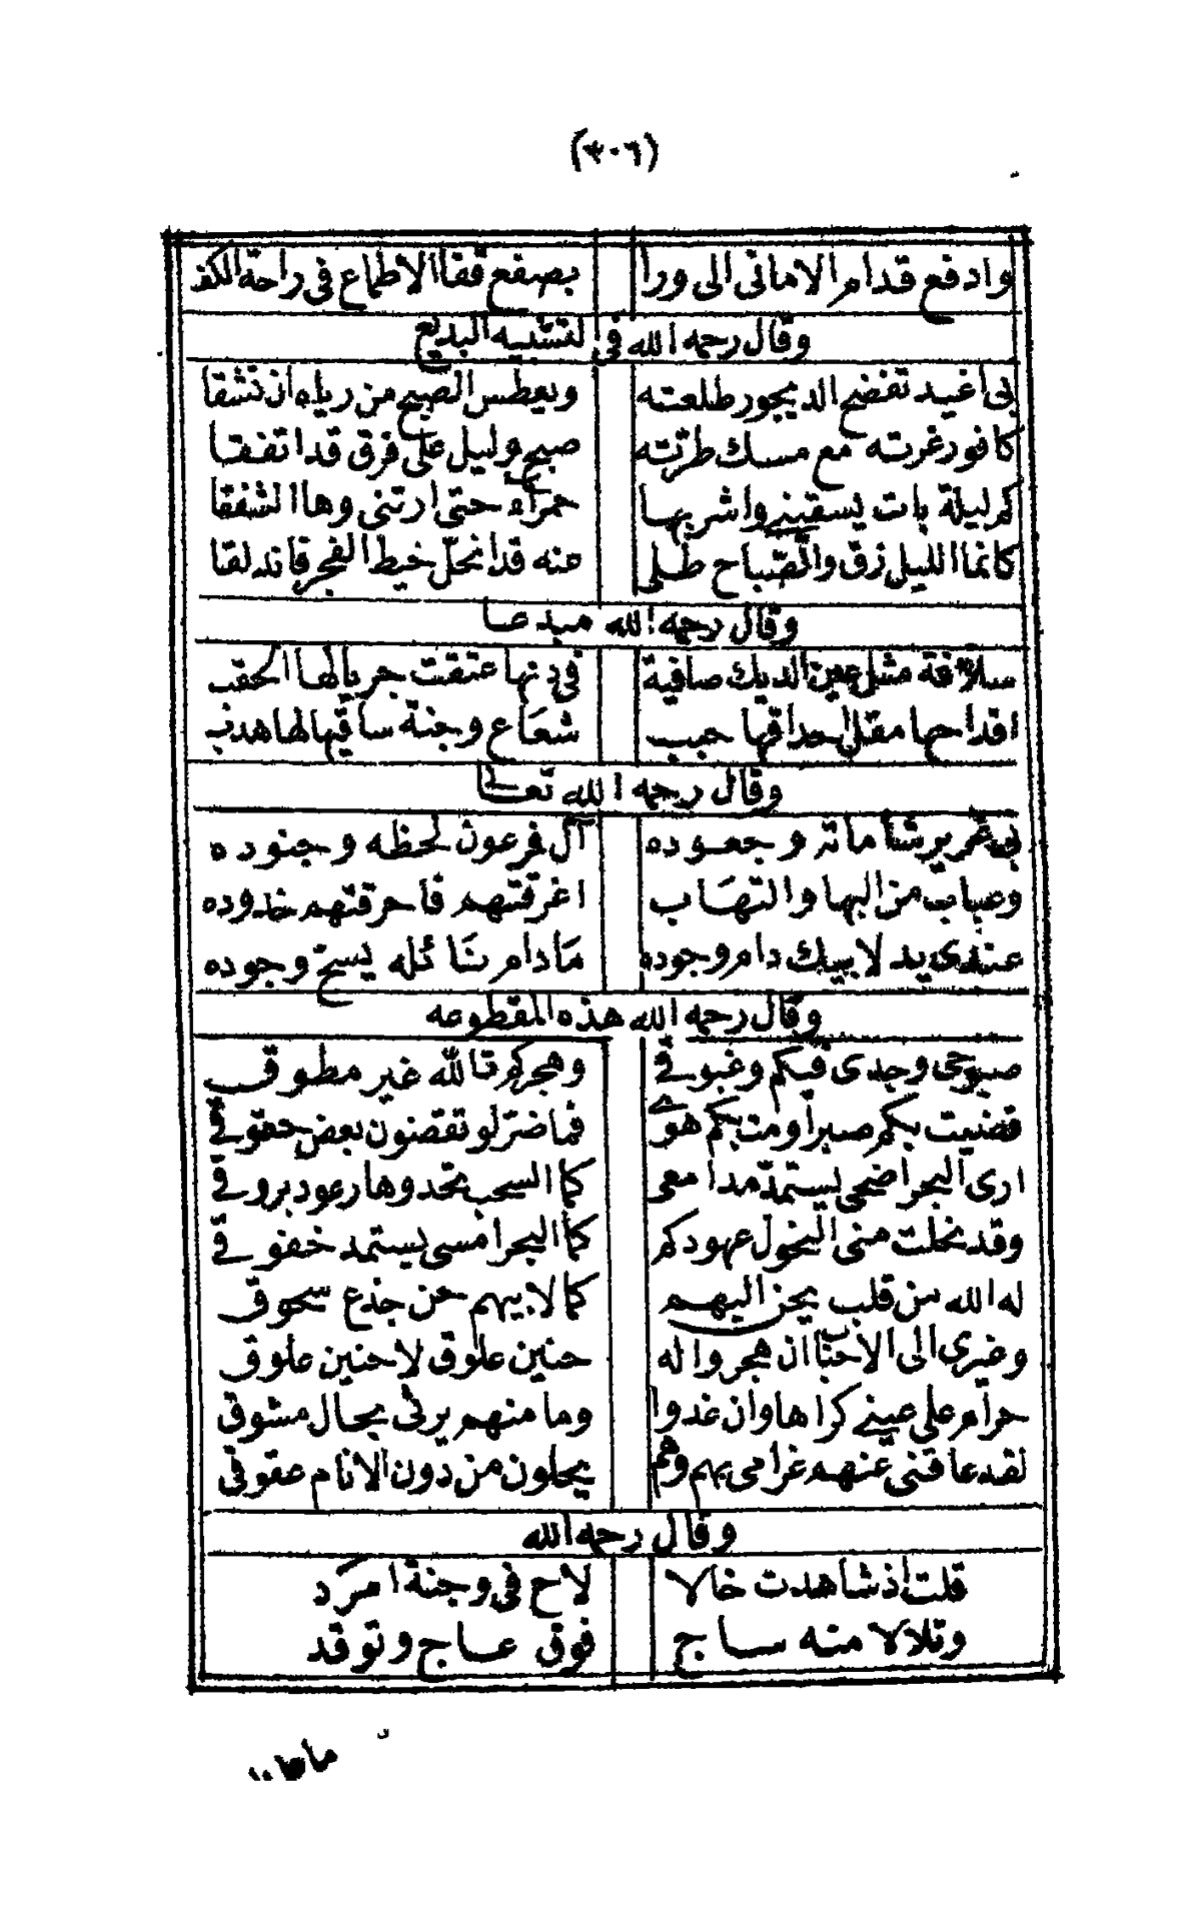 (٣٠٦)
وادفع قدام الامانى الى ورا بصفع قفا الاطماع فى راحة الكف
وقال رحمه الله فى التشبيه البديع
بى اغيد تفضح الديجور طلعته ويعطس الصبح من رياه ان نشقا
كافور غرته مع مسك طرّته صبح وليل على فرق قد اتفقا
كم ليلة بات يسقينى واشربها حمرآء حتى ارتنى وها الشفقا
كانما الليل زق والصّباح طلى منه قد انحلّ خيط الفجر فاندلقا
وقال رحمه الله مبدعا
سلافة مثل عين الديك صافية فى دنها عتقت جريالها الحقب
اقداحها مقل احداقها حبب شعاع وجنة ساقيها لها هدب
وقال رحمه الله تعالى
بى غرير شاماته وجعوده آل فرعون لحظه وجنوده
وعباب من البها والتهاب اغرقتهم فاحرقتهم خدوده
عندى يد لابيك دام وجوده مادام نائله يسح وجوده
وقال رحمه الله هذه المقطوعه
صبوحى وجدى فيكم وغبوقى وهجركم تالله غير مطوق
قضيت بكم صبرا ومت بكم هوى فما ضرّ لو تقضون بعض حقوقى
ارى البحر اضحى يستمدّ مدامعى كما السحب تحدوها رعود بروقى
وقد نحلت منى النحول عهودكم كما البحر امسى يستمد خفوقى
له الله من قلب يحن اليهم كما لا بيهم حن جذع سحوق
وضرى الى الاحباب ان هجروا له حنين علوق لا حنين علوق
حرام على عينى كراها وان غدوا وما منهم يرثى بحال مشوق
لقد عاقنى عنهم غرامى بهم وهم يحلون من دون الانام عقوقى
وقال رحمه الله
قلت اذ شاهدت خالا لاح فى وجنة امرد
وتلالا منه ساج فوق عاج وتوقد